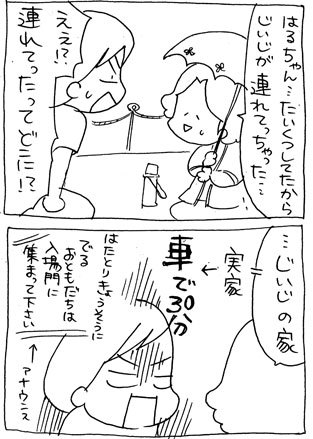 はるちゃん…たいくつしてたから
じいじが連れてっちゃった…
ええ!?
連れてったってどこに!?
…じいじの家
実家
車で30分
はたとりきょうそうに
でる
おともだちは
入場門に
集まって下さい
アナウンス